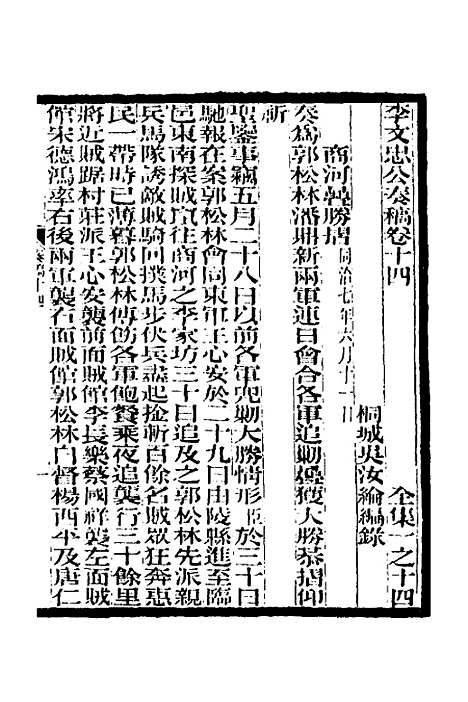 李文忠公奏稿卷十四　全集一之十四
桐城吳汝綸編錄
商河疊勝摺　同治七年六月十一日
奏爲郭松林潘鼎新兩軍連日會合各軍追勦疊獲大勝恭摺仰祈
聖鑒事竊五月二十八日以前各軍兜勦大勝情形臣於三十日
馳報在案郭松林會同東軍王心安於二十九日由陵縣進至臨
邑東南探賊竄往商河之李家坊三十日追及之郭松林先派親
兵馬隊誘敵賊騎回撲馬步伏兵盡起擒斬百餘名賊眾狂奔惠
民一帶時已薄暮郭松林傳飭各軍飽餐乘夜追襲行三十餘里
將近賊踞村莊派王心安襲前面賊館李長樂蔡國祥襲左面賊
館宋德鴻率右後兩軍襲右面賊館郭松林自督楊西平及唐仁